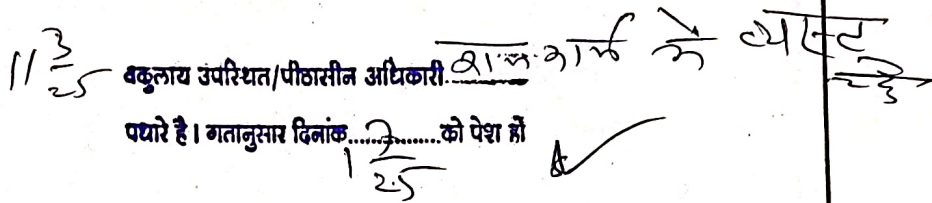 11 3/25 वकुलाय उपस्थित/पीठासीन अधिकारी राज कार्य में व्यस्त
पधारे है। गतानुसार दिनांक.....1 7/25.....को पेश हों